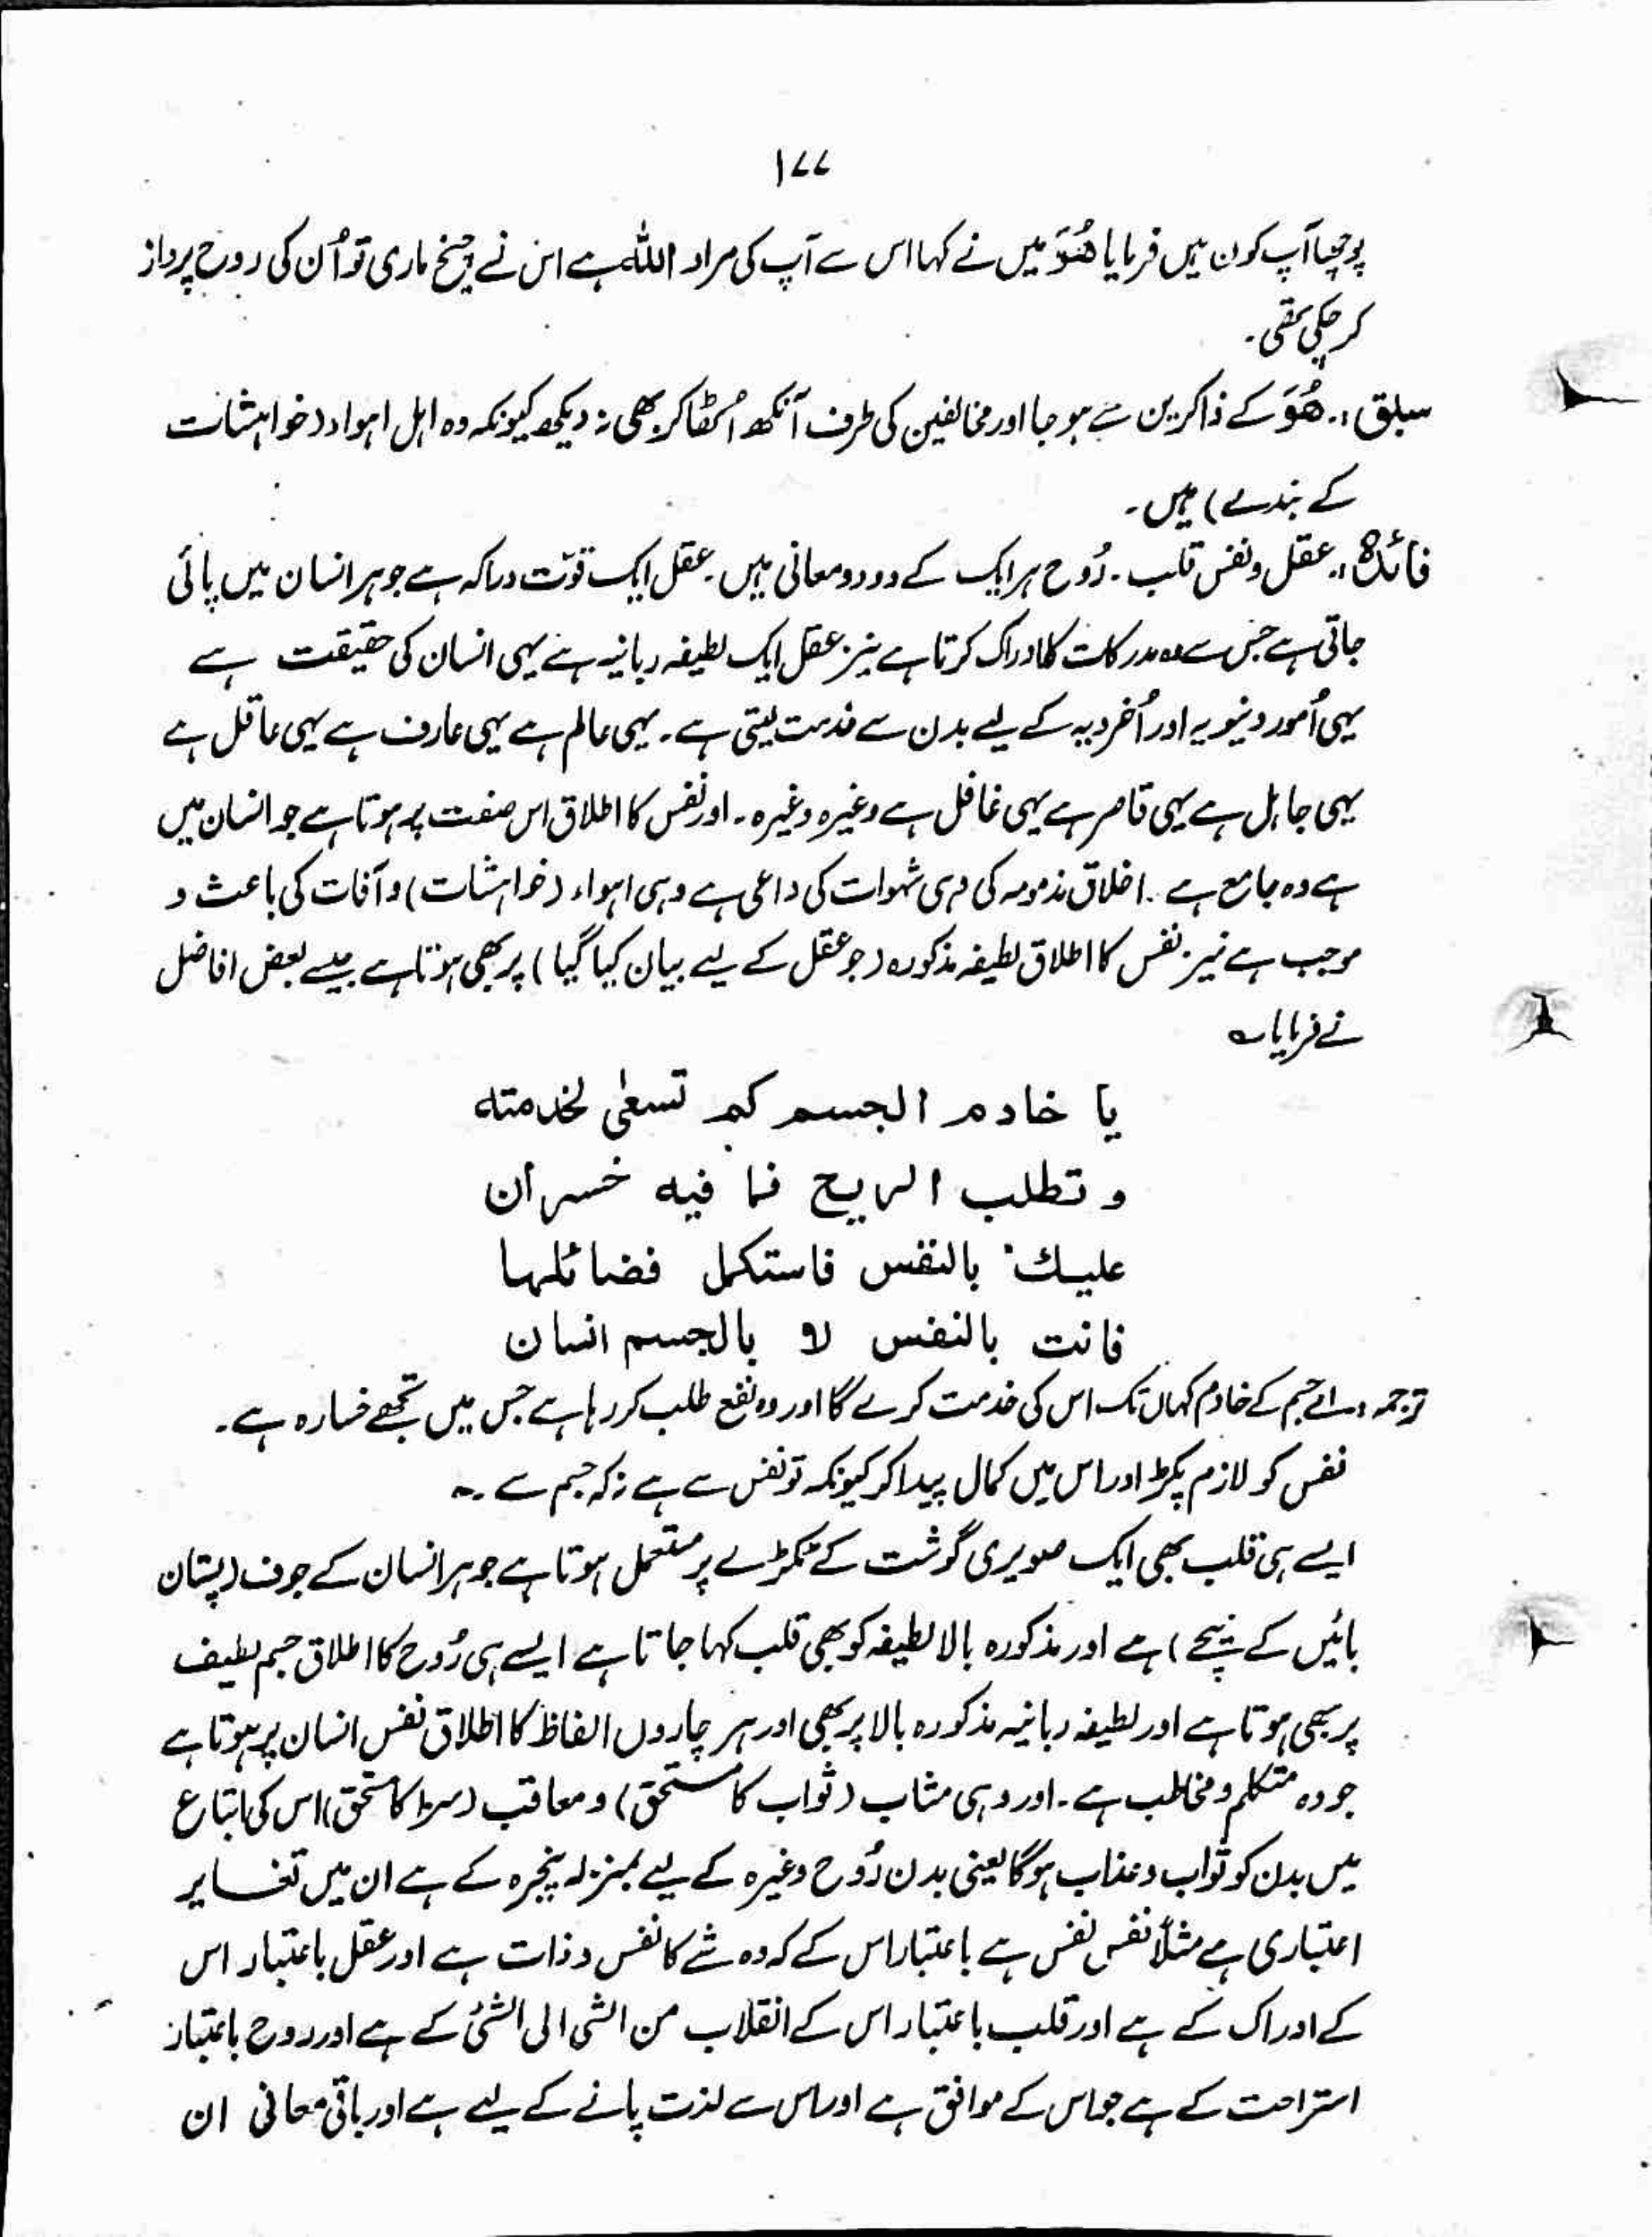 ۱۷۷
پوچھا آپ کون ہیں فرمایا ھُوَ میں نے کہا اس سے آپ کی مراد اللہ ہے اس نے چیخ ماری تو اُن کی روح پرواز
کر چکی تھی۔
سبق :۔ ھُوَ کے ذاکرین سے ہو جا اور مخالفین کی طرف آنکھ اُٹھا کر بھی نہ دیکھ کیونکہ وہ اہل اہواء (خواہشات
کے بندے) ہیں۔
فائدہ :۔ عقل و نفس قلب۔ رُوح ہر ایک کے دو دو معانی ہیں۔ عقل ایک قوّت دراکہ ہے جو ہر انسان میں پائی
جاتی ہے جس سے وہ مدرکات کا ادراک کرتا ہے نیز عقل ایک لطیفہ ربانیہ ہے یہی انسان کی حقیقت ہے
یہی اُمور دنیویہ اور اُخرویہ کے لیے بدن سے خدمت لیتی ہے۔ یہی عالم ہے یہی عارف ہے یہی عاقل ہے
یہی جاہل ہے یہی قاصر ہے یہی غافل ہے وغیرہ وغیرہ۔ اور نفس کا اطلاق اس صفت پر ہوتا ہے جو انسان میں
ہے وہ جامع ہے۔ اخلاق مذمومہ کی وہی شہوات کی داعی ہے وہی اہواء (خواہشات) و آفات کی باعث و
موجب ہے نیز نفس کا اطلاق لطیفہ مذکورہ (جو عقل کے لیے بیان کیا گیا) پر بھی ہوتا ہے جیسے بعض افاضل
نے فرمایا ؎
یا خادم الجسم کم تسعٰی لخدمته
و تطلب الربح فما فیه خسران
علیك بالنفس فاستکمل فضائلها
فانت بالنفس لا بالجسم انسان
ترجمہ :۔ اے جسم کے خادم کہاں تک اس کی خدمت کرے گا اور وہ نفع طلب کر رہا ہے جس میں تجھے خسارہ ہے۔
نفس کو لازم پکڑ اور اس میں کمال پیدا کر کیونکہ تو نفس سے ہے نہ کہ جسم سے ۔
ایسے ہی قلب بھی ایک صنوبری گوشت کے ٹکڑے پر مستعمل ہوتا ہے جو ہر انسان کے جوف (پستان
بائیں کے نیچے) ہے اور مذکورہ بالا لطیفہ کو بھی قلب کہا جاتا ہے ایسے ہی رُوح کا اطلاق جسم لطیف
پر بھی ہوتا ہے اور لطیفہ ربانیہ مذکورہ بالا پر بھی اور ہر چاروں الفاظ کا اطلاق نفس انسان پر ہوتا ہے
جو وہ متکلم و مخاطب ہے۔ اور وہی مثاب (ثواب کا مستحق) و معاقب (سزا کا مستحق) اس کی اتباع
میں بدن کو ثواب و عذاب ہو گا یعنی بدن رُوح وغیرہ کے لیے بمنزلہ پنجرہ کے ہے ان میں تغایر
اعتباری ہے مثلاً نفس نفس ہے باعتبار اس کے کہ وہ شے کا نفس و ذات ہے اور عقل باعتبار اس
کے ادراک کے ہے اور قلب باعتبار اس کے انقلاب من الشی الی الشئی کے ہے اور روح باعتبار
استراحت کے ہے جو اس کے موافق ہے اور اس سے لذت پانے کے لیے ہے اور باقی معانی ان